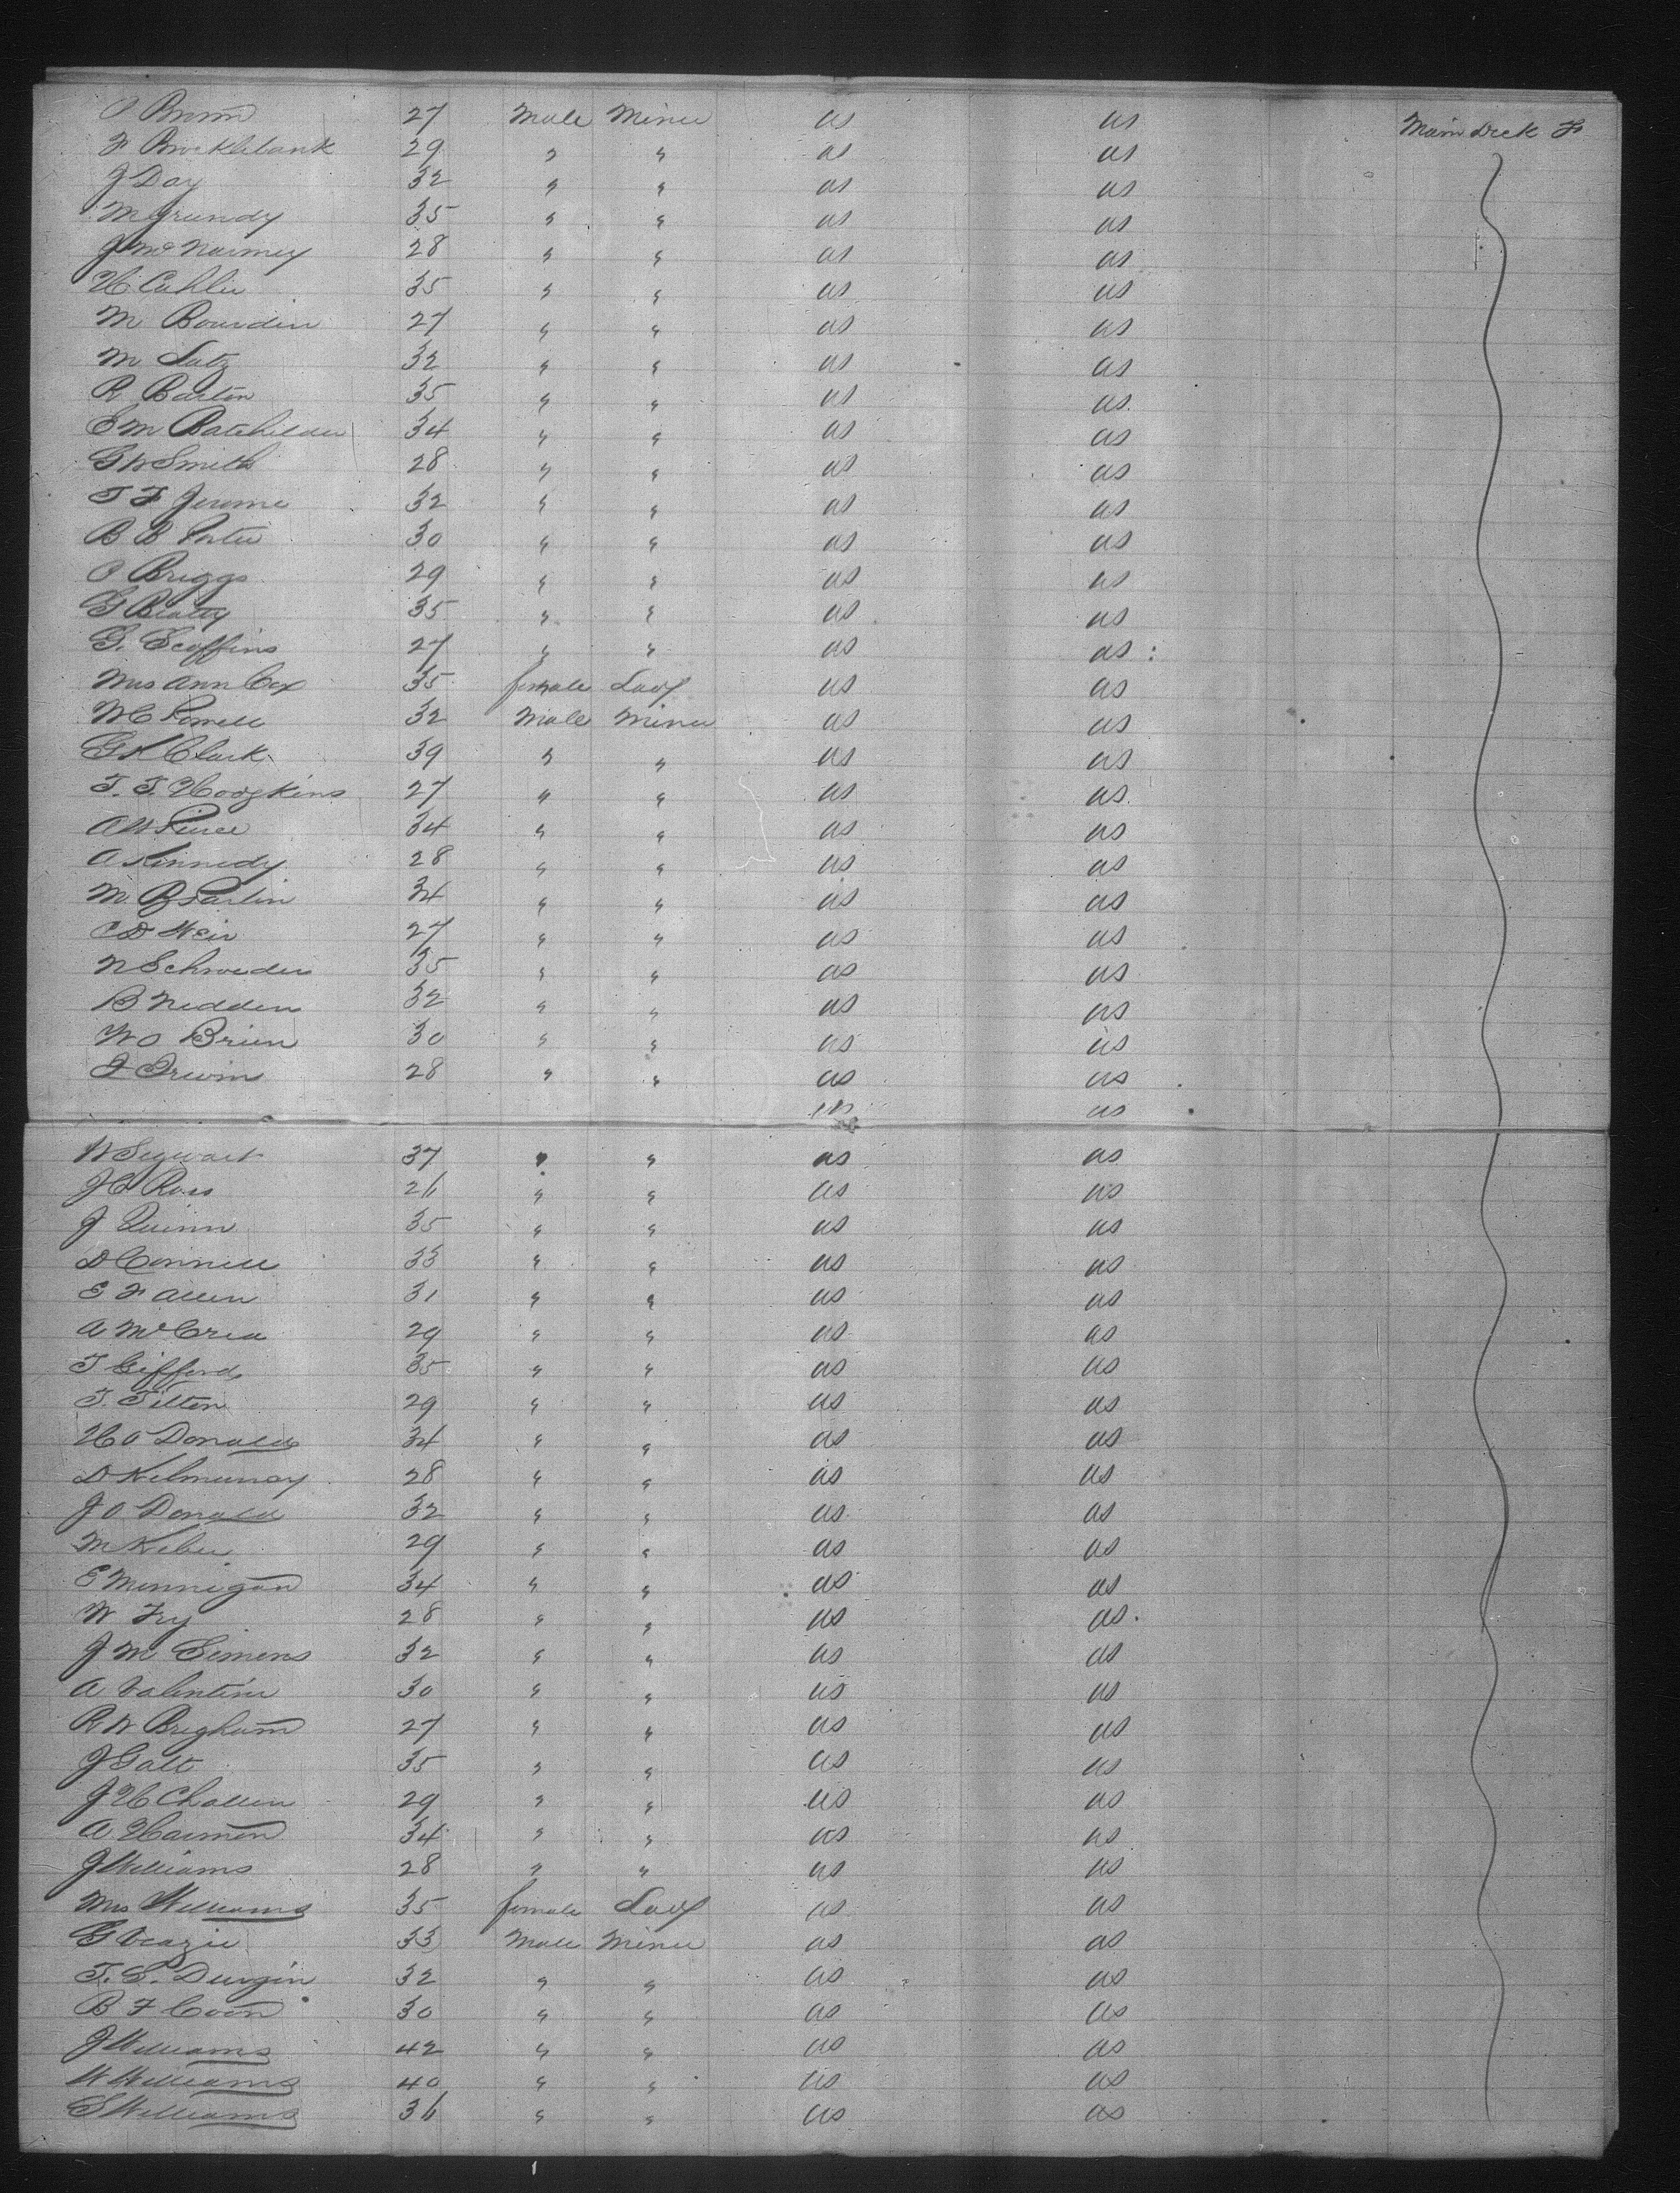 O Brown 27 Male Miner us us Main Deck F
F Brocklebank 29 " " us us
J Day 32 " " us us
M Grundy 35 " " us us
J McNarmey 28 " " us us
H Cahler 35 " " us us
M Bourdin 27 " " us us
M Lutz 32 " " us us
R Barton 35 " " us us
E M Batchelder 34 " " us us
G W Smith 28 " " us us
T F Jerome 32 " " us us
B B Porter 30 " " us us
O Briggs 29 " " us us
G Beatty 35 " " us us
G. Scoffins 27 " " us us
Mrs Ann Cox 35 female Lady us us
W C Powell 32 Male Miner us us
G K Clark 39 " " us us
T. T. Hodgkins 27 " " us us
A W Pierce 34 " " us us
A Kennedy 28 " " us us
M B Partin 34 " " us us
C D Weir 27 " " us us
N Schroeder 35 " " us us
B Nedden 32 " " us us
W O Brien 30 " " us us
J Irwin 28 " " us us
us us
W Segwart 37 " " us us
J C Ross 26 " " us us
J Quinn 35 " " us us
D Connell 33 " " us us
E F Allen 31 " " us us
A McCrea 29 " " us us
T Gifford 35 " " us us
T. Tilton 29 " " us us
H O Donald 34 " " us us
D Kilmurray 28 " " us us
J O Donald 32 " " us us
M Keber 29 " " us us
E Mennigan 34 " " us us
W Fry 28 " " us us
J M Simens 32 " " us us
A Valentine 30 " " us us
R W Brigham 27 " " us us
J Galt 35 " " us us
J H Challen 29 " " us us
A Harmon 34 " " us us
J Williams 28 " " us us
Mrs Williams 35 female Lady us us
G Veazie 33 Male Miner us us
T. S. Durgin 32 " " us us
B F Coon 30 " " us us
J Williams 42 " " us us
W Williams 40 " " us us
S Williams 36 " " us us